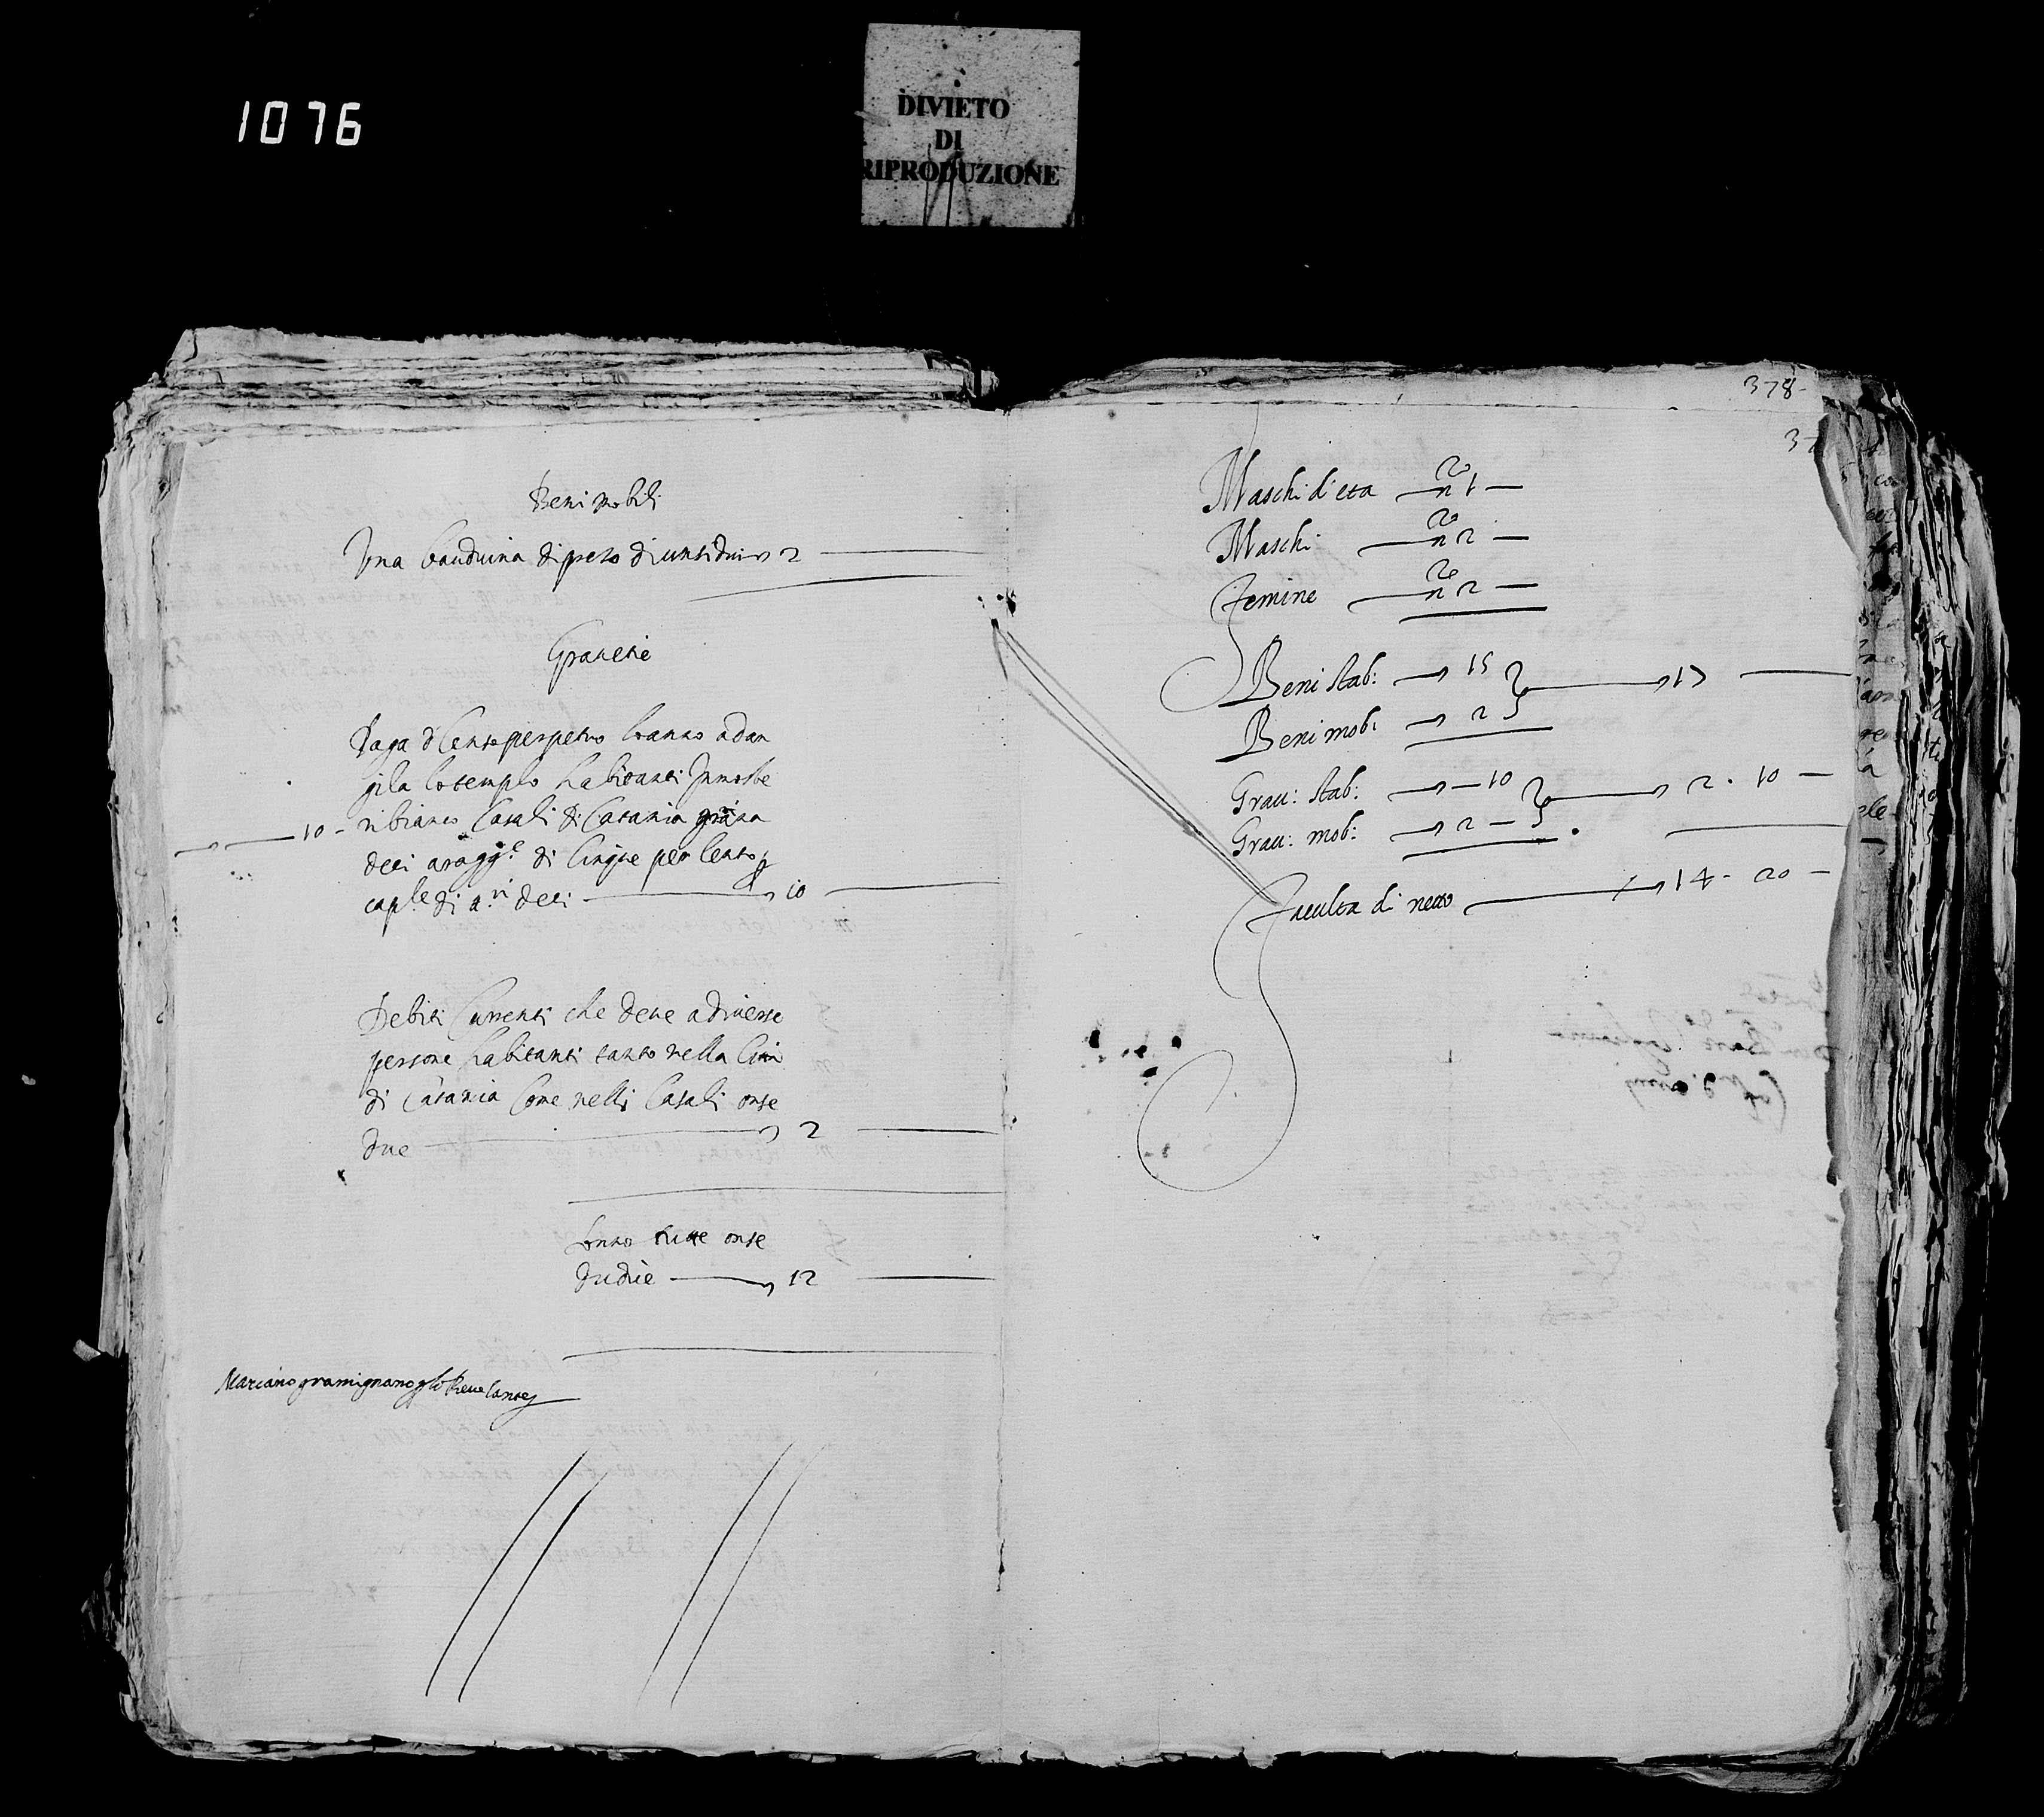 1076
DIVIETO
DI
RIPRODUZIONE
Beni mobili
Una bauduina di preso di unsi dui 2
Graueze
Paga di Censo perpetuo l'anno ad an
gila lo templo habitanti In monste
10 - ribianco Casali di Catania grana
deci a ragg.e di Cinque per Cento
cap.le di u.ni deci 10
Debiti Currenti che deue a diuerse
persone habitanti tanto nella Citta
di Catania Come nelli Casali onse
due 2
sono tutte onse
dudici 12
Mariano gramignano Reuelante
378
37
Maschi d'eta n.o 1
Maschi n.o 2
Femine n.e 2
Beni stab: 15
17
Beni mob: 2
Grau: stab: 10
2 . 10
Grau: mob: 2
Faculta di netto 14 - 20